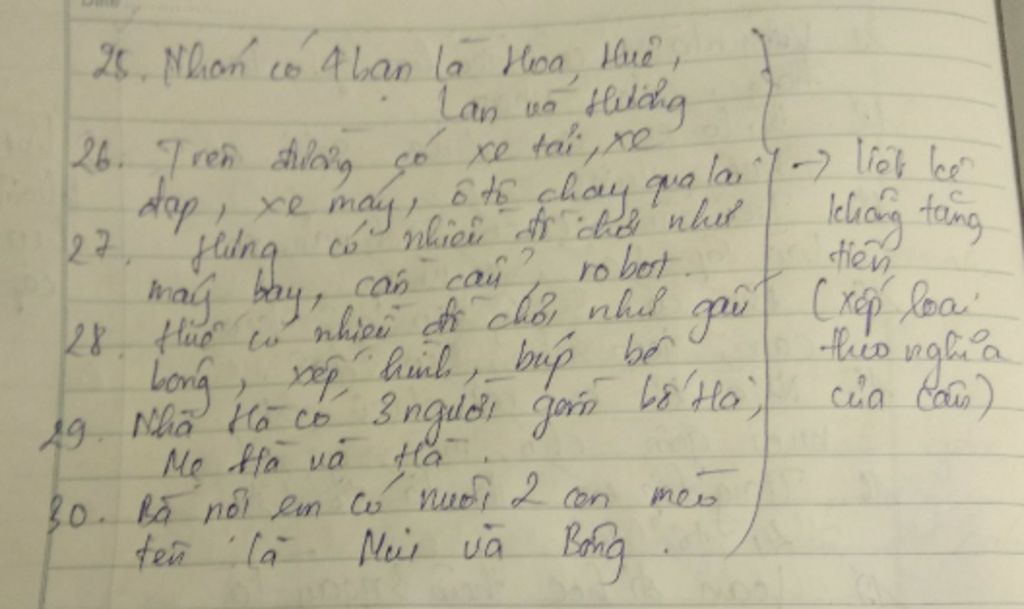 25. Nhàn có 4 bạn là Hoa, Huê,
Lan và Hường
26. Trên đường có xe tải, xe
đạp, xe máy, ô tô chạy qua lại
27. Hưng có nhiều đồ chơi như
máy bay, cần cẩu, robot.
28. Huê có nhiều đồ chơi như gấu
bông, xếp hình, búp bê
29. Nhà Hà có 3 người gồm bố Hà,
Mẹ Hà và Hà.
30. Bà nội em có nuôi 2 con mèo
tên là và Bông.
→ liệt kê
không tăng
tiến
(xếp loại
theo nghĩa
của câu)